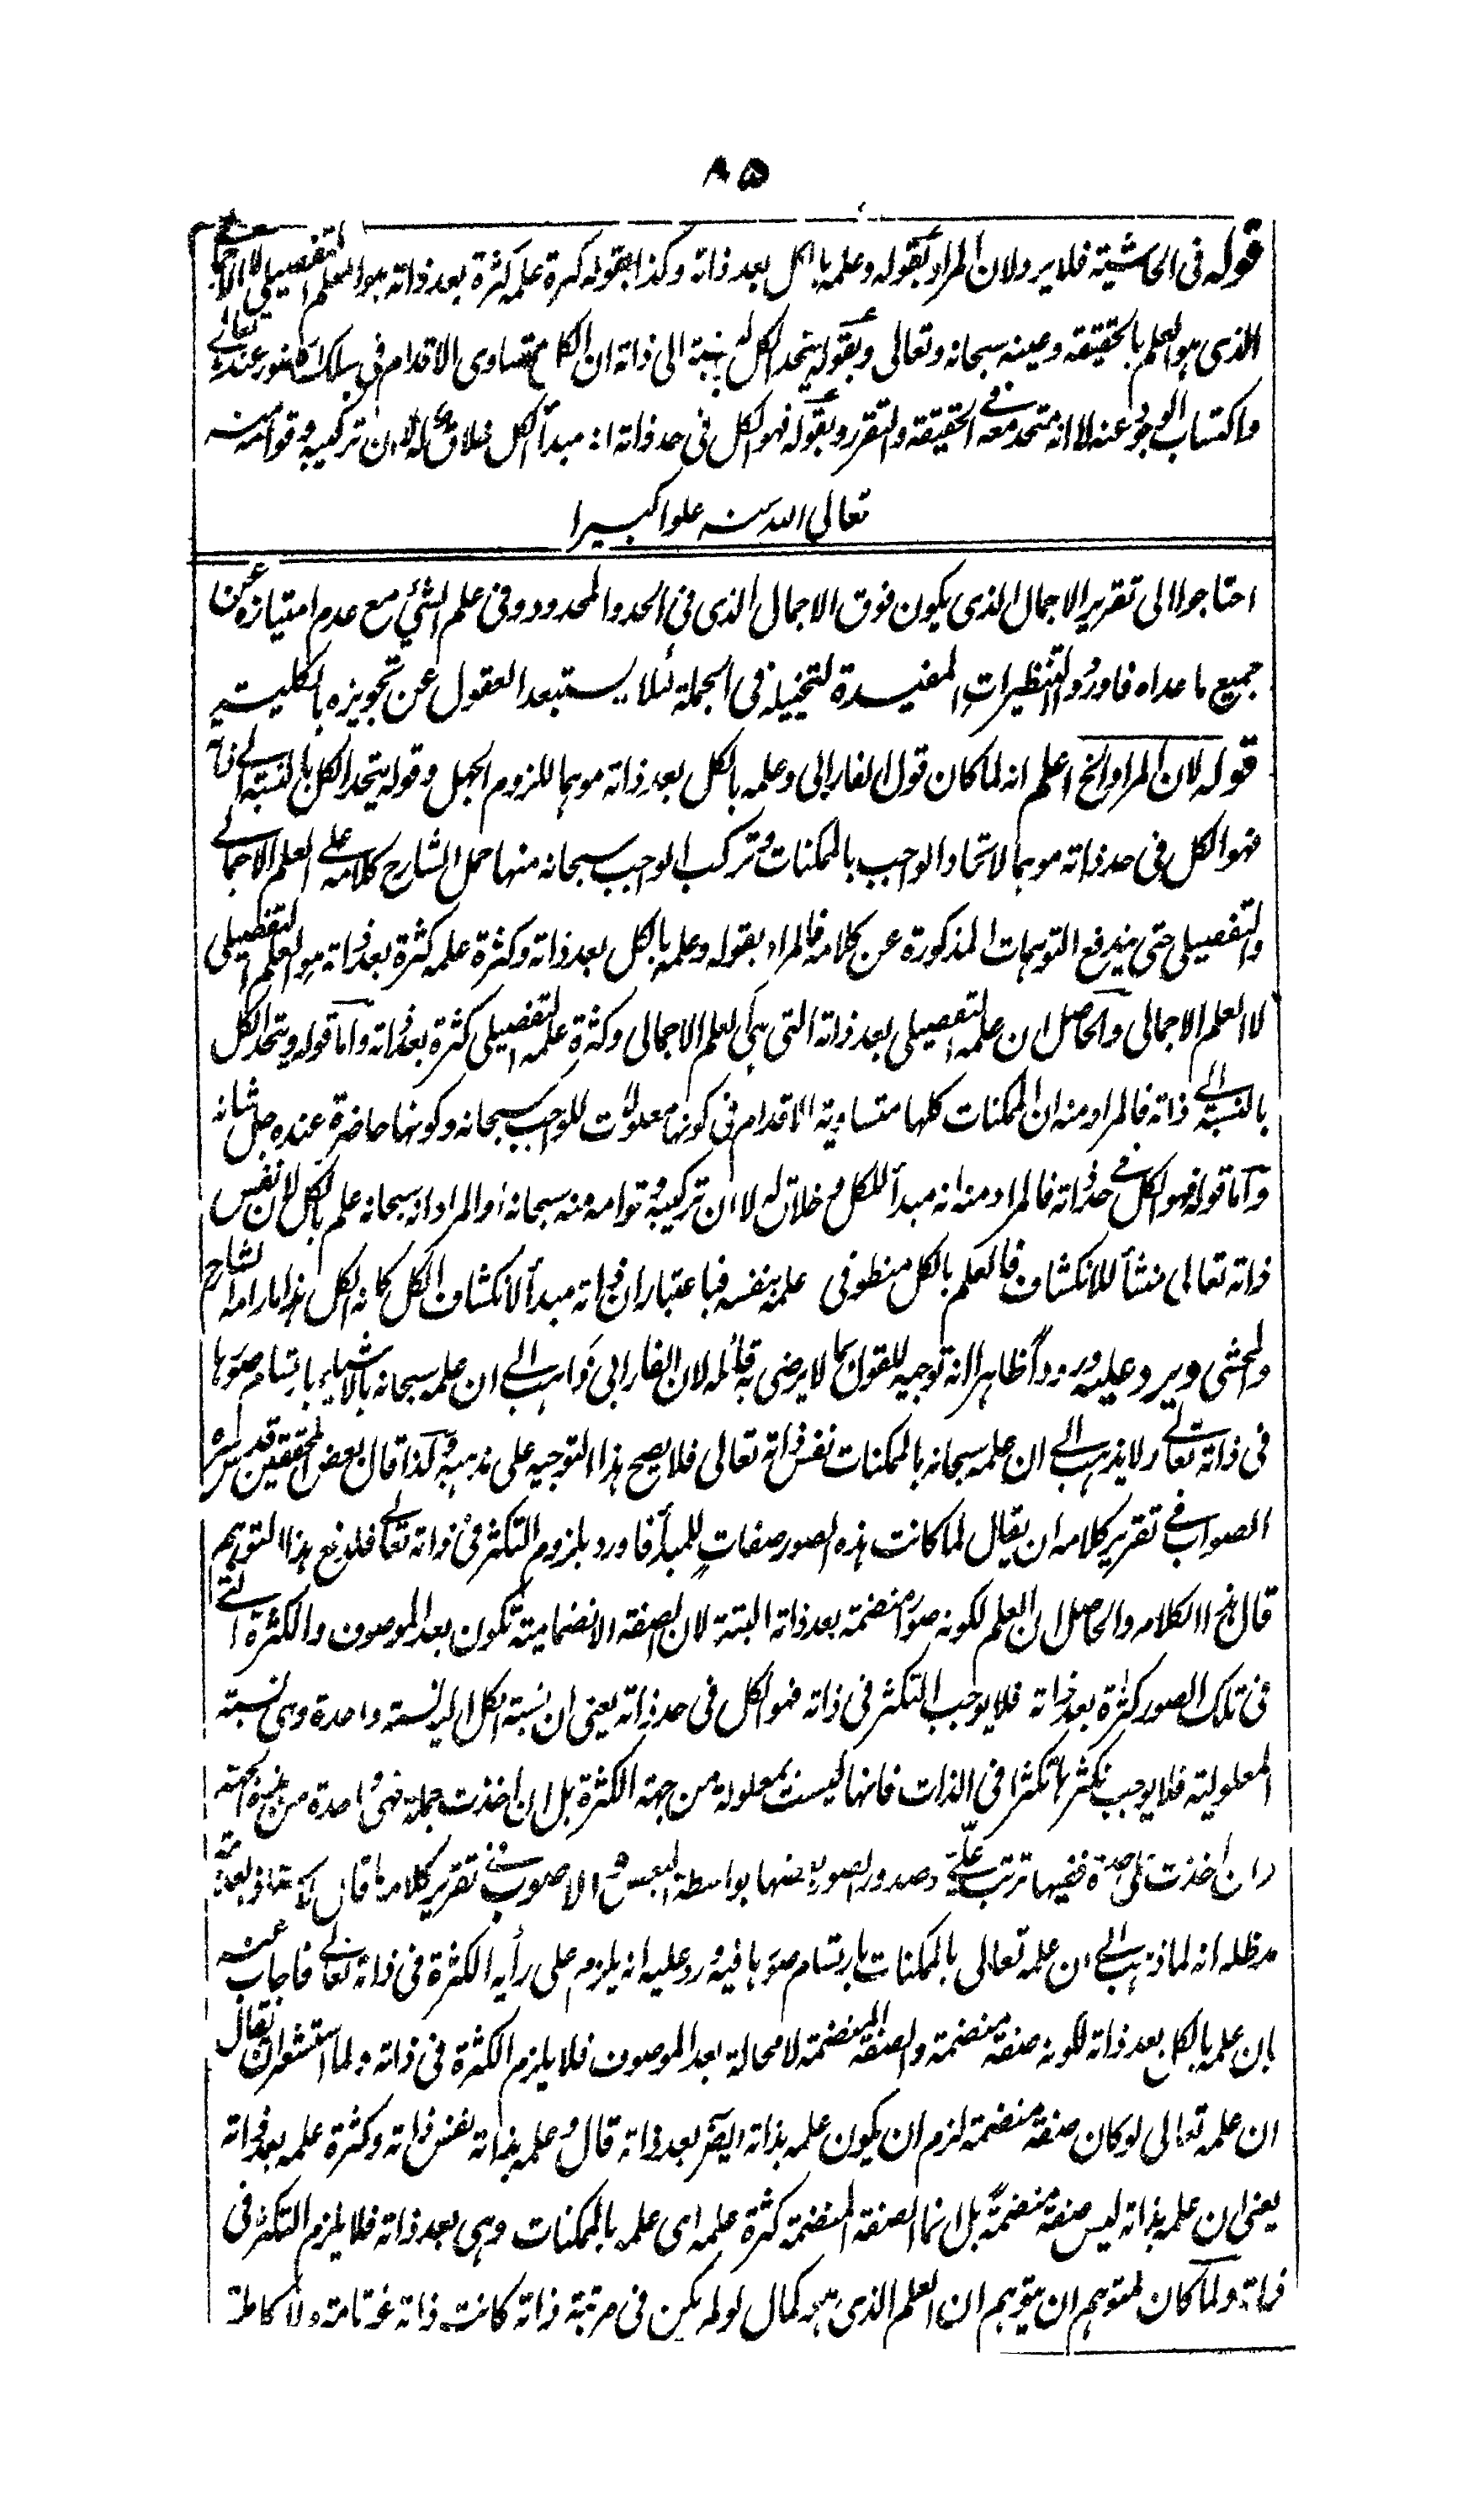 ٨٥
قوله فى الحاشية فلا يرد لان المراد بقوله وعلمه بالكل بعد ذاته وكذا بقوله كثرة علمه كثرة بعد ذاته هو العلم التفصيلى لا الاجمالى
الذى هو العلم بالحقيقة وعينه سبحانه وتعالى وبقوله يتحد الكل بالنسبة الى ذاته ان الكل متساوى الاقدام فى سلك الحضور عنده تعالى
واكتساب الوجود عنه لا انه متحد معه فى الحقيقة والتقرر وبقوله فهو الكل فى حد ذاته انه مبدأ الكل خلاق له لا ان تركيبه وقوامه منه
تعالى الله منه علوا كبيرا
احتاجوا الى تقرير الاجمال الذى يكون فوق الاجمال الذى فى الحد والمحدود وفى علم الشئ مع عدم امتيازه عن
جميع ما عداه فاوردوا التنظيرات المفيدة لتخييله فى الجملة لئلا يستبعد العقول عن تجويزه بالكلية
قوله لان المراد الخ اعلم انه لما كان قول الفارابى وعلمه بالكل بعد ذاته موهما للزوم الجهل وقوله يتحد الكل بالنسبة الى ذاته
فهو الكل فى حد ذاته موهما لاتحاد الواجب بالممكنات وتركب الواجب سبحانه منها حمل الشارح كلامه على العلم الاجمالى
والتفصيلى حتى يندفع التوهمات المذكورة عن كلامه فالمراد بقوله وعلمه بالكل بعد ذاته وكثرة علمه كثرة بعد ذاته هو العلم التفصيلى
لا العلم الاجمالى والحاصل ان علمه التفصيلى بعد ذاته التى هى العلم الاجمالى وكثرة علمه التفصيلى كثرة بعد ذاته واما قوله ويتحد الكل
بالنسبة الى ذاته فالمراد منه ان الممكنات كلها متساوية الاقدام فى كونها معلولات للواجب سبحانه وكونها حاضرة عنده جل شانه
واما قوله فهو الكل فى حد ذاته فالمراد منه انه مبدأ للكل وخلاق له لا ان تركيبه وقوامه منه سبحانه او المراد انه سبحانه علم بالكل لان نفس
ذاته تعالى منشأ للانكشاف فالعلم بالكل منطو فى علمه بنفسه فباعتبار ان ذاته مبدأ لانكشاف الكل كانه الكل هذا ما رامه الشارح
والمحشى ويرد عليه ورودا ظاهرا انه توجيه للقول بما لا يرضى به قائله لان الفارابى ذاهب الى ان علمه سبحانه بالاشياء بارتسام صورها
فى ذاته تعالى ولا يذهب الى ان علمه سبحانه بالممكنات نفس ذاته تعالى فلا يصح هذا التوجيه على مذهبه وكذا قال بعض المحققين قدس سره
الصواب فى تقرير كلامه ان يقال لما كانت هذه الصور صفات للمبدأ فاورد بلزوم التكثر فى ذاته تعالى فلدفع هذا التوهم
قال هذا الكلام والحاصل ان العلم لكونه صورا منضمة بعد ذاته البتة لان الصفة الانضمامية تكون بعد الموصوف والكثرة التى
فى تلك الصور كثرة بعد ذاته فلا يوجب التكثر فى ذاته فهو الكل فى حد ذاته يعنى ان نسبة الكل اليه نسبة واحدة وهى نسبة
المعلولية فلا يوجب تكثرها تكثرا فى الذات فانها ليست بمعلولة من جهة الكثرة بل ان اخذت جملة فهى واحدة من هذه الجهة
وان اخذت على حدة ففيها ترتب على وصدور الصور بعضها بواسطة البعض والاصوب فى تقرير كلامه ما قال
مدظله انه لما ذهب الى ان علمه تعالى بالممكنات بارتسام صورها فيه ورد عليه انه يلزم على رأيه الكثرة فى ذاته تعالى فاجاب عنه
بان علمه بالكل بعد ذاته لكونه صفة منضمة والصفة المنضمة لا محالة بعد الموصوف فلا يلزم الكثرة فى ذاته ولما استشعر ان يقال
ان علمه تعالى لو كان صفة منضمة لزم ان يكون علمه بذاته ايضا بعد ذاته قال وعلمه بذاته نفس ذاته وكثرة علمه بعد ذاته
يعنى ان علمه بذاته ليس صفة منضمة بل انما الصفة المنضمة كثرة علمه اى علمه بالممكنات وهى بعد ذاته فلا يلزم التكثر فى
ذاته ولما كان لمتوهم ان يتوهم ان العلم الذى هو كمال لو لم يكن فى مرتبة ذاته كانت ذاته غير تامة ولا كاملة